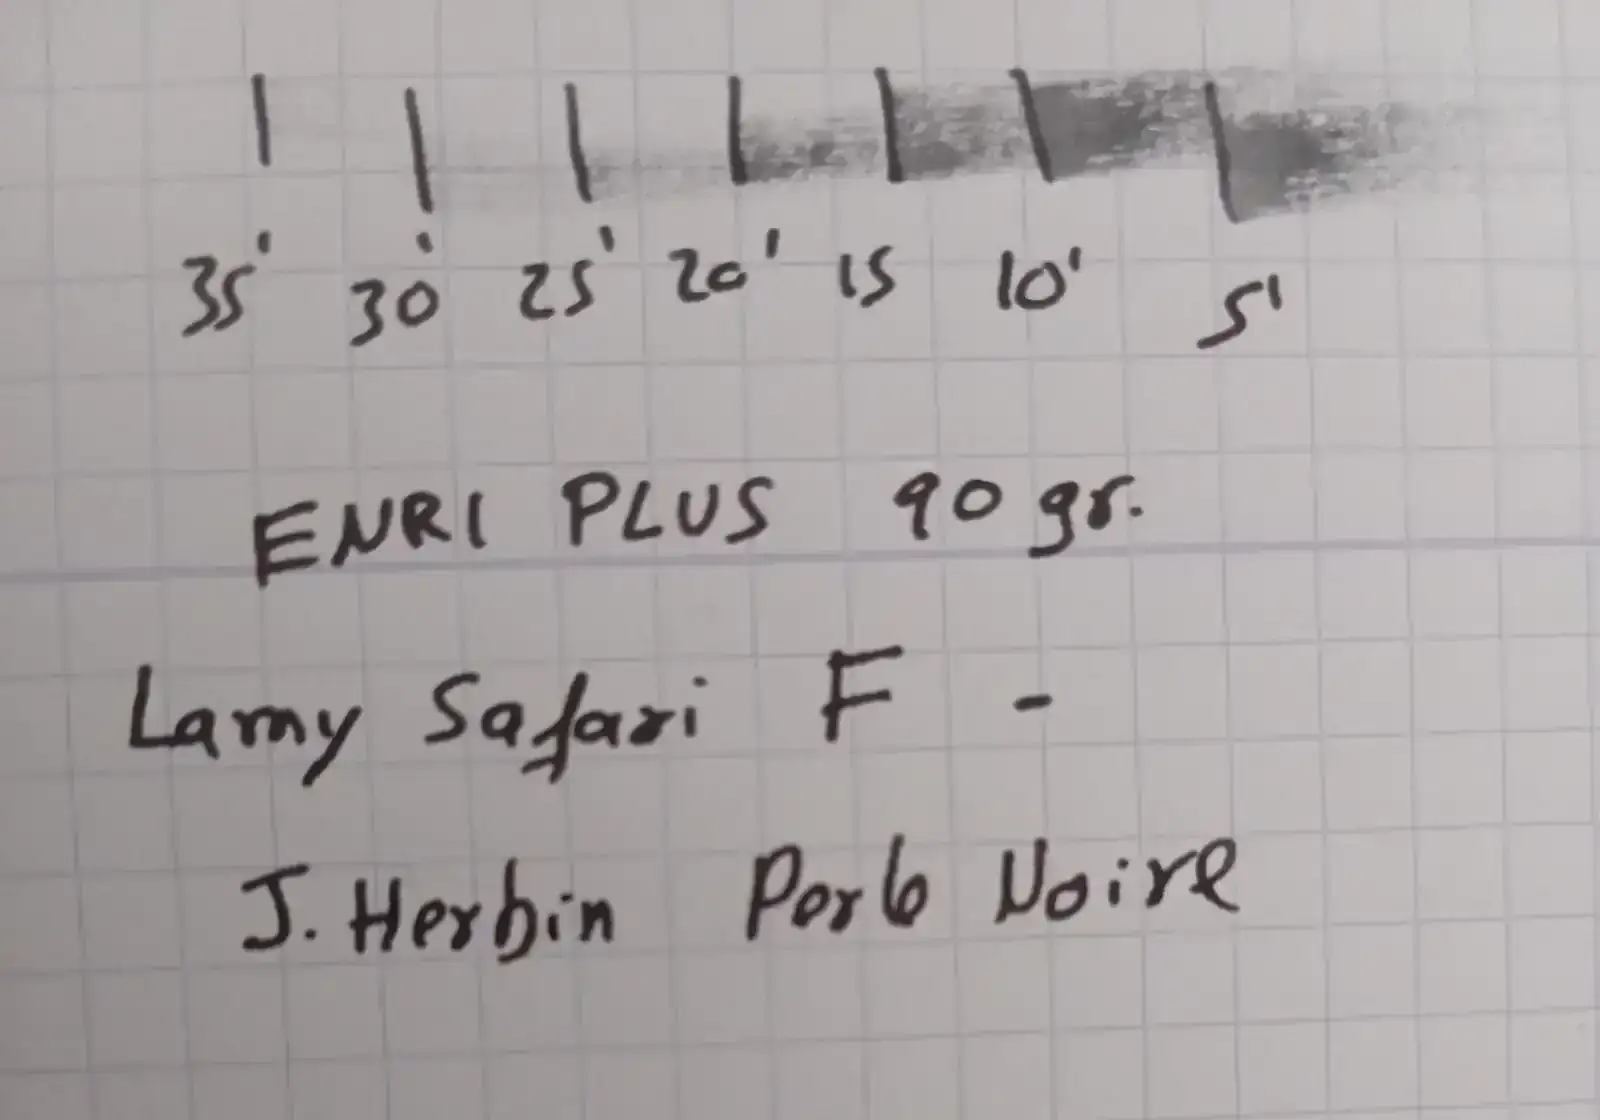 35' 30' 25' 20' 15 10' 5'
ENRI PLUS 90 gr.
Lamy Safari F -
J. Herbin Perle Noire